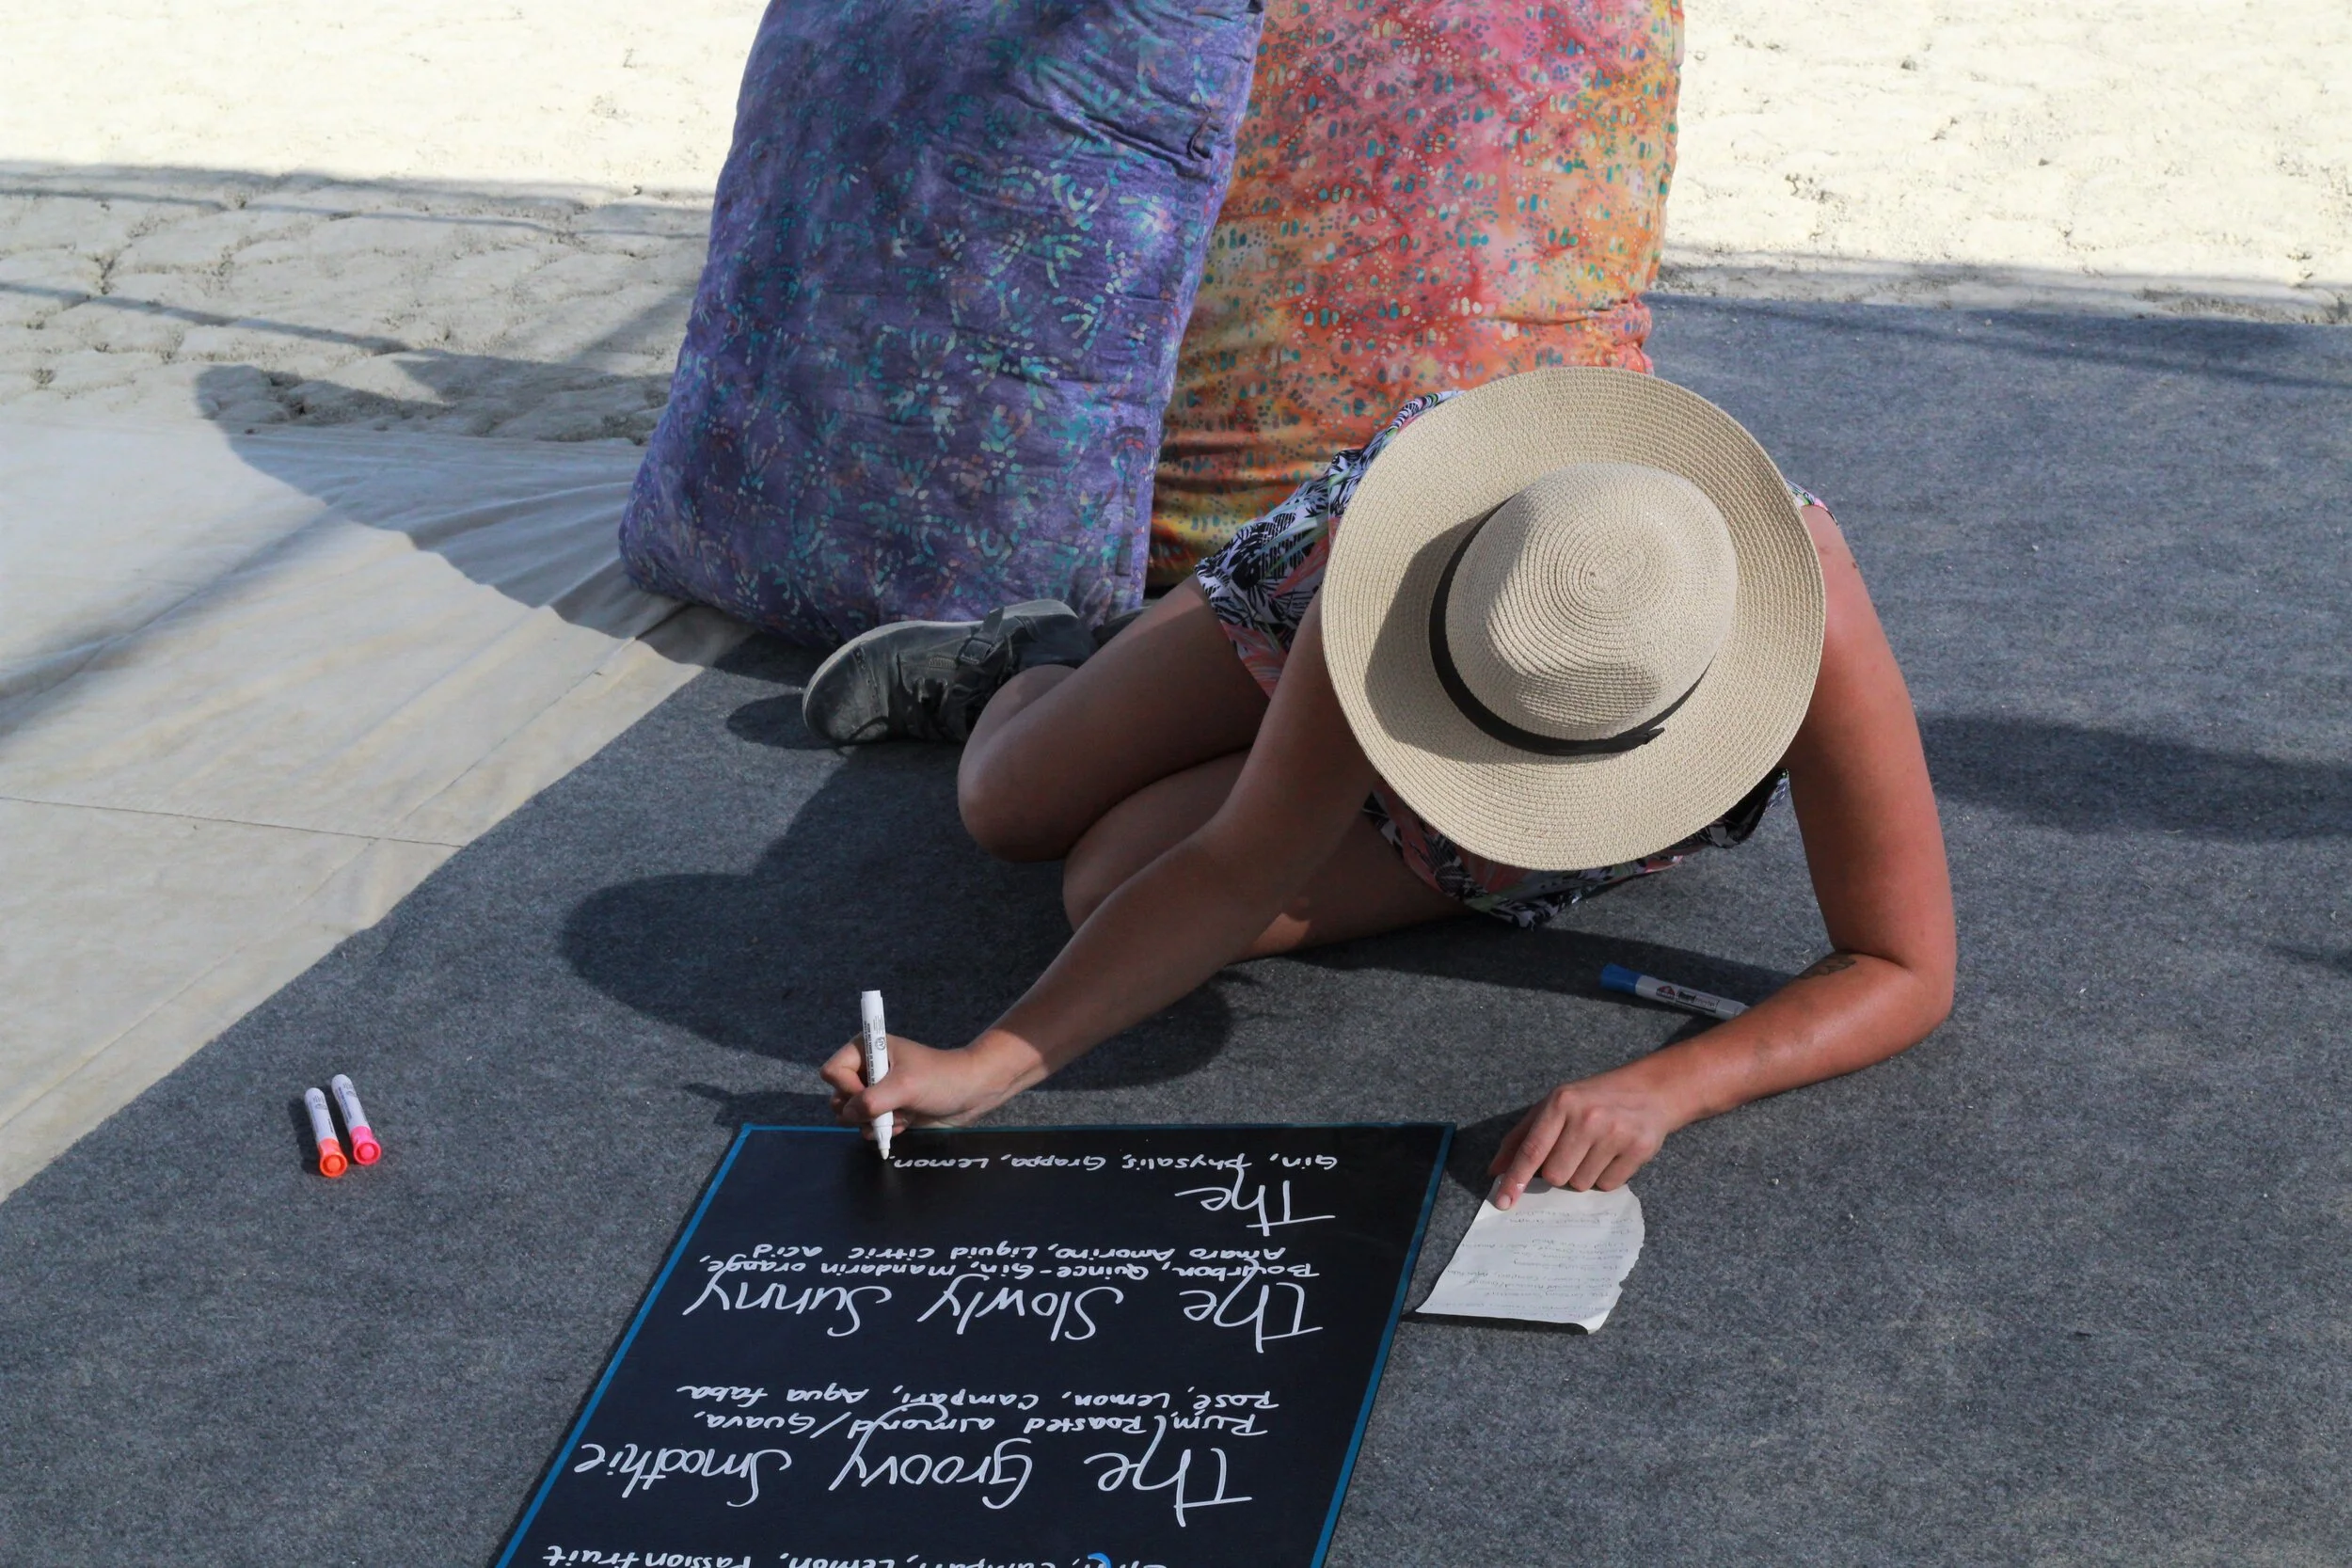 Campari, Lemon, Passionfruit
The Groovy Smoothie
Rum, Roasted almond/Guava,
Rosé, Lemon, Campari, Aqua faba
The Slowly Sunny
Bourbon, Quince-Gin, Mandarin orange,
Amaro Amorino, Liquid citric acid
The
Gin, Physalis, Grappa, Lemon,